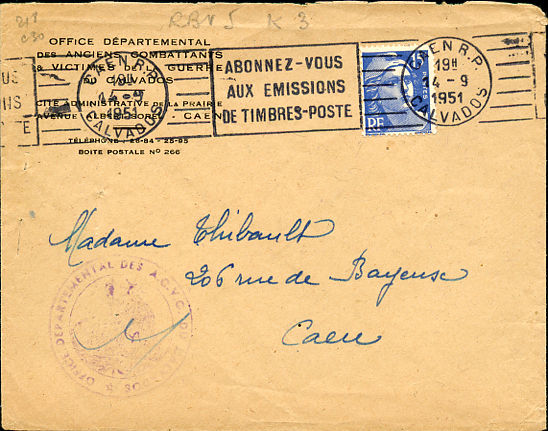 RBV5 K 3
OFFICE DÉPARTEMENTAL
DES ANCIENS COMBATTANTS
& VICTIMES DE LA GUERRE
DU CALVADOS
CITÉ ADMINISTRATIVE DE LA PRAIRIE
AVENUE ALBERT-SOREL - CAEN
TÉLÉPHONE : 28-84 - 25-95
BOITE POSTALE Nº 266
CAEN R.P.
19H
14-9
1951
CALVADOS
ABONNEZ-VOUS
AUX EMISSIONS
DE TIMBRES-POSTE
CAEN R.P.
19H
14-9
1951
CALVADOS
RF
US
NS
E
Madame Thibault
206 rue de Bayeuse
Caen
OFFICE DÉPARTEMENTAL DES A.C.V.G.